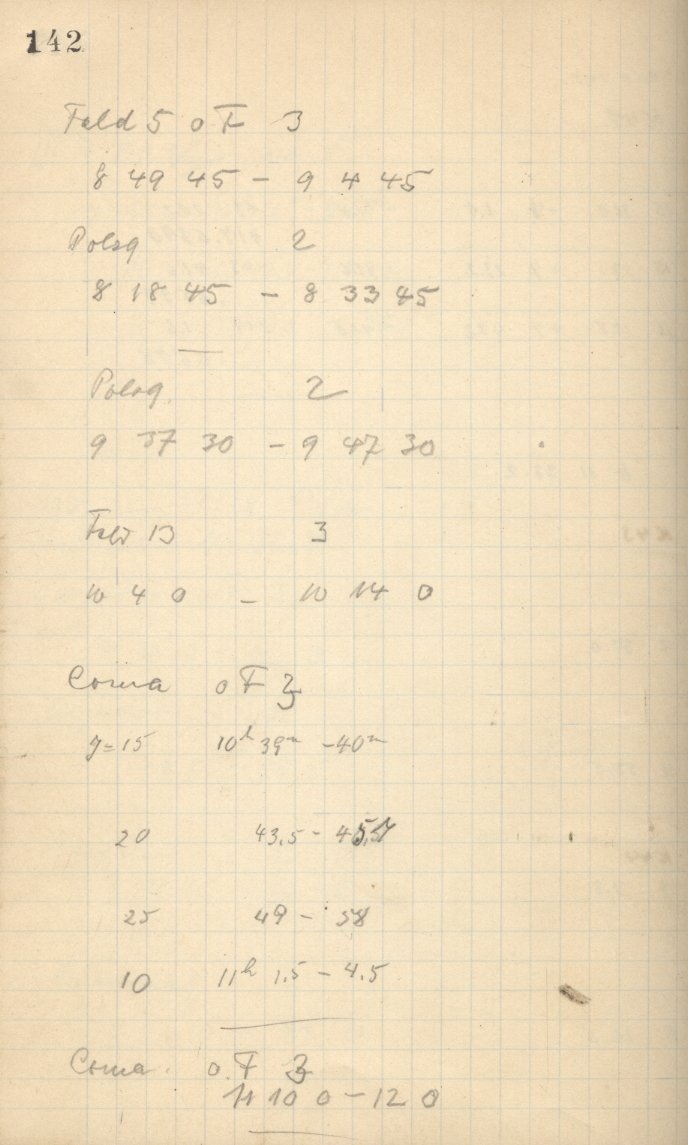 142
Feld 5 oF 3
8 49 45 – 9 4 45
Polsq 2
8 18 45 – 8 33 45
Polsq. 2
9 37 30 – 9 47 30
Feld 13 3
10 4 0 – 10 14 0
Coma oF 3
y=15 10h 39m – 40m
20 43,5 – 45,5
25 49 – 58
10 11h 1.5 – 4.5
Coma. oF 3
11 10 0 – 12 0